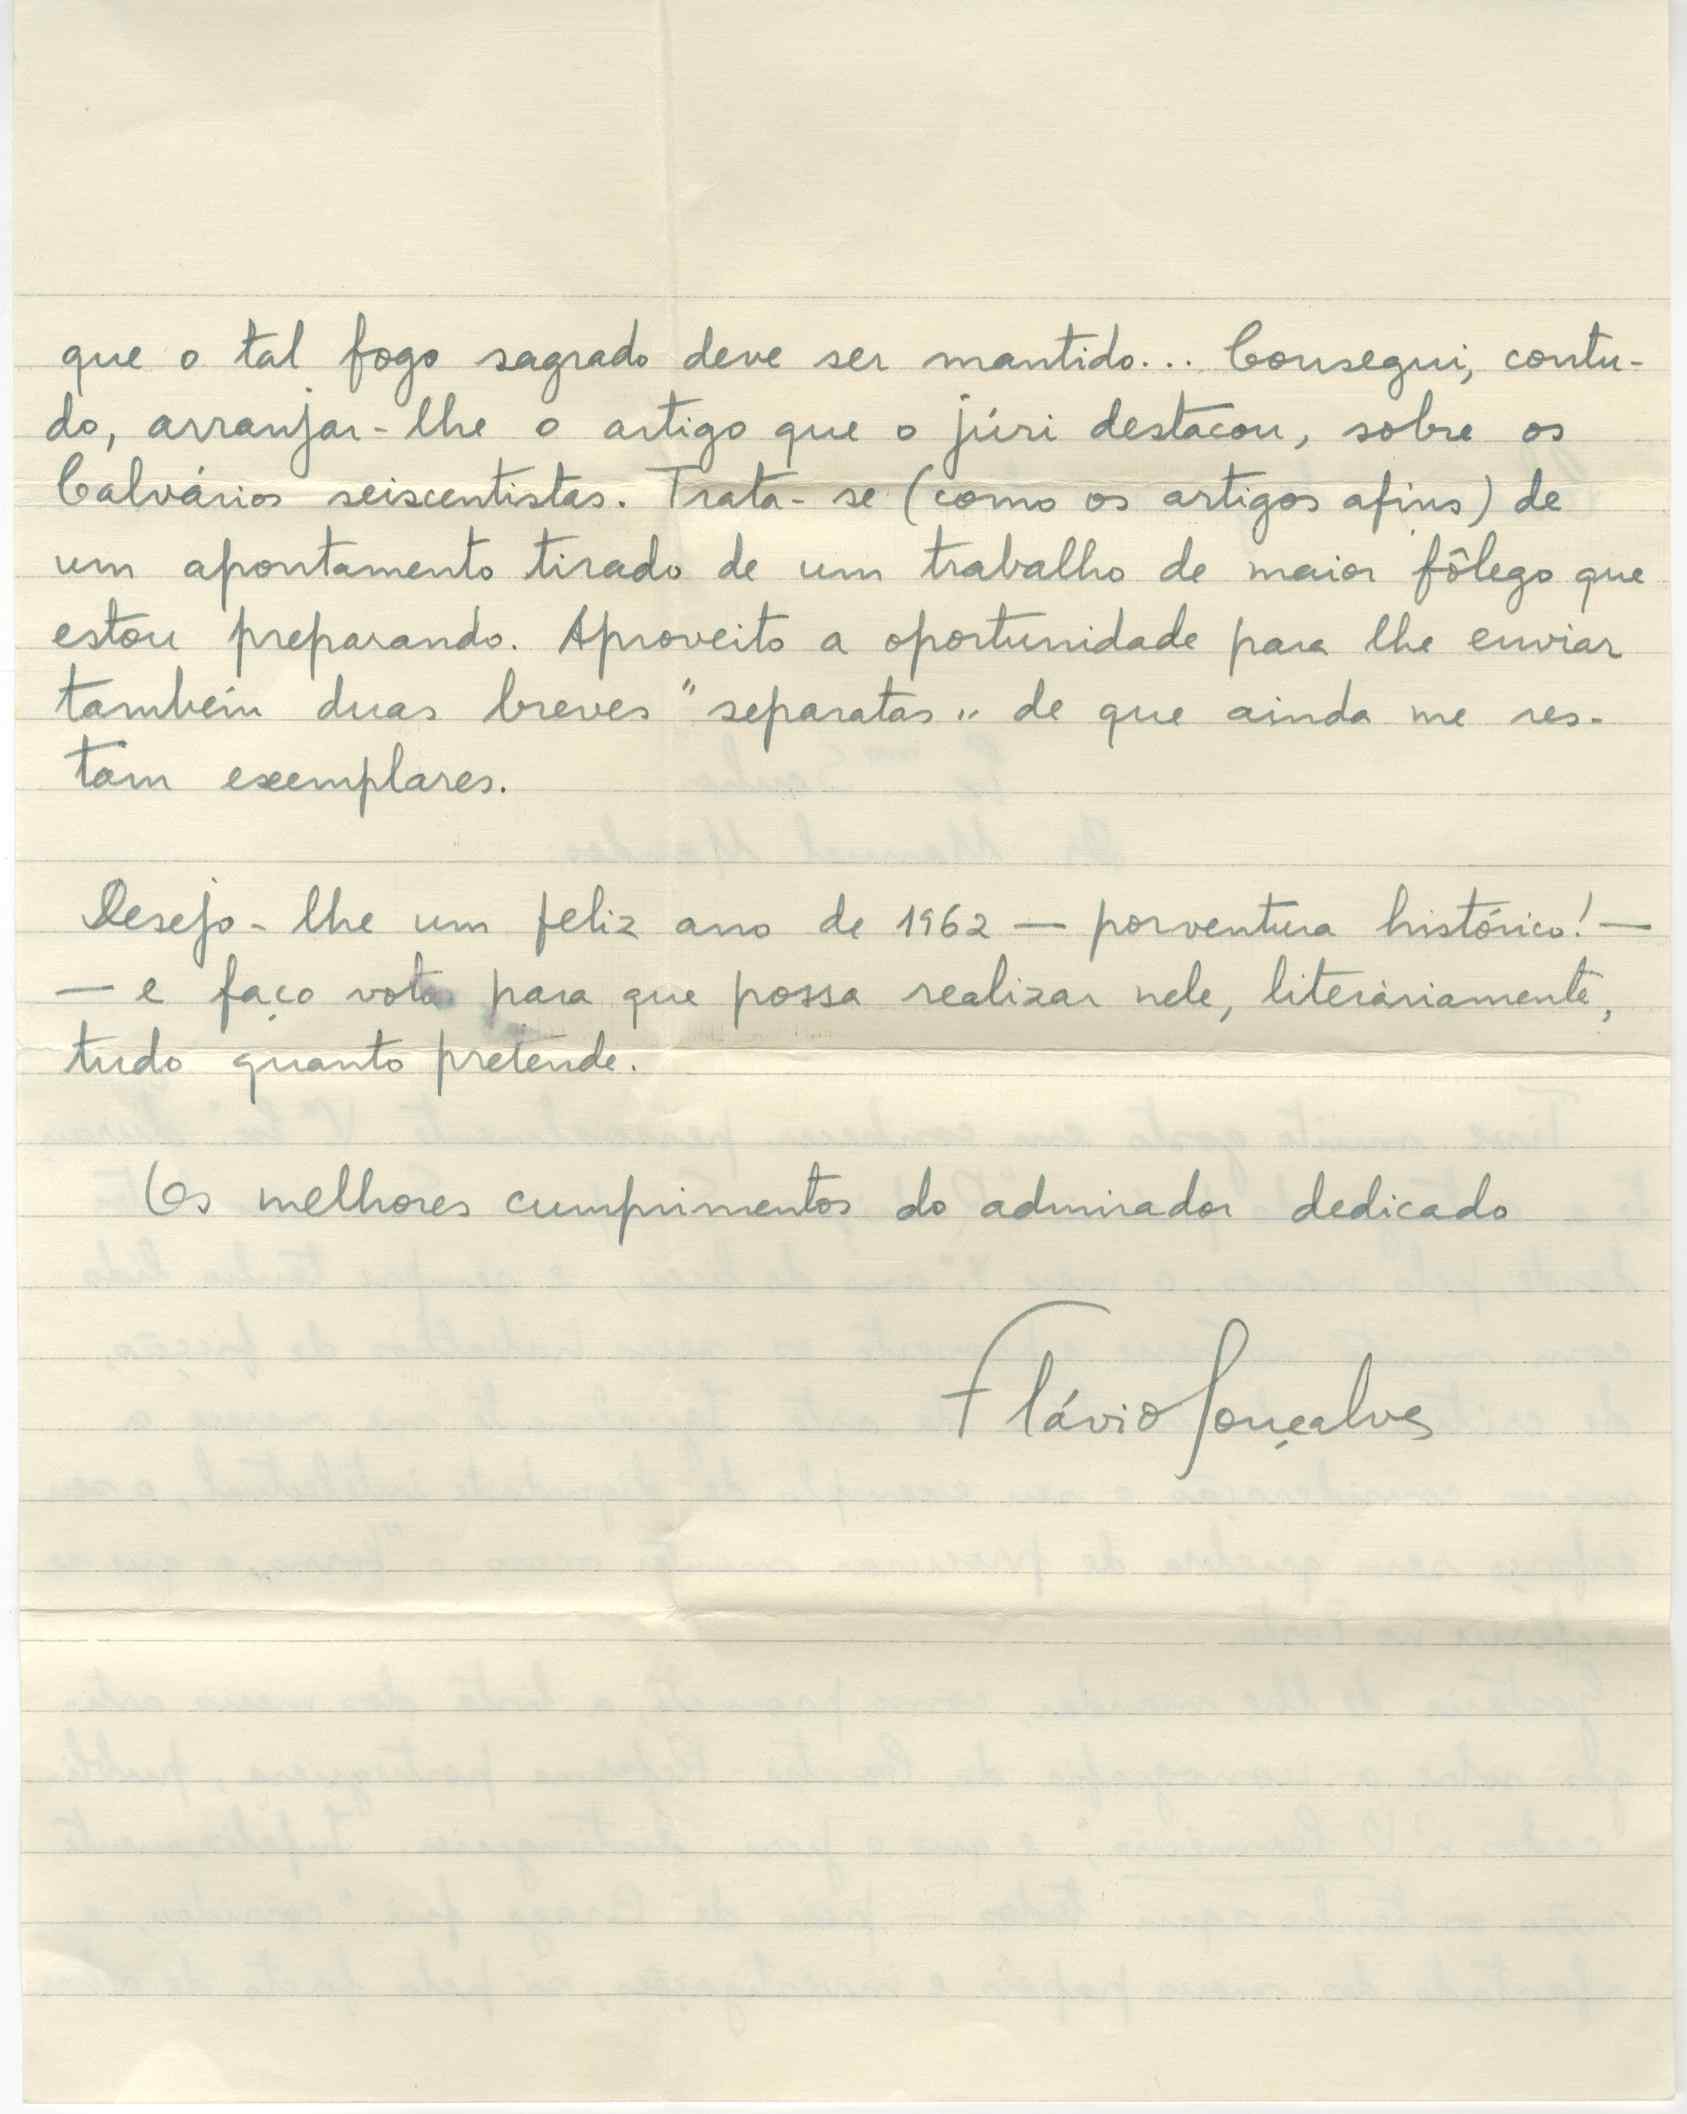 que o tal fogo sagrado deve ser mantido... Consegui, contu-
do, arranjar-lhe o artigo que o júri destacou, sobre os
Calvários seiscentistas. Trata-se (como os artigos afins) de
um apontamento tirado de um trabalho de maior fôlego que
estou preparando. Aproveito a oportunidade para lhe enviar
também duas breves "separatas" de que ainda me res-
tam exemplares.
Desejo-lhe um feliz ano de 1962 — porventura histórico! —
— e faço votos para que possa realizar nele, literàriamente,
tudo quanto pretende.
Os melhores cumprimentos do admirador dedicado
Flávio Gonçalves